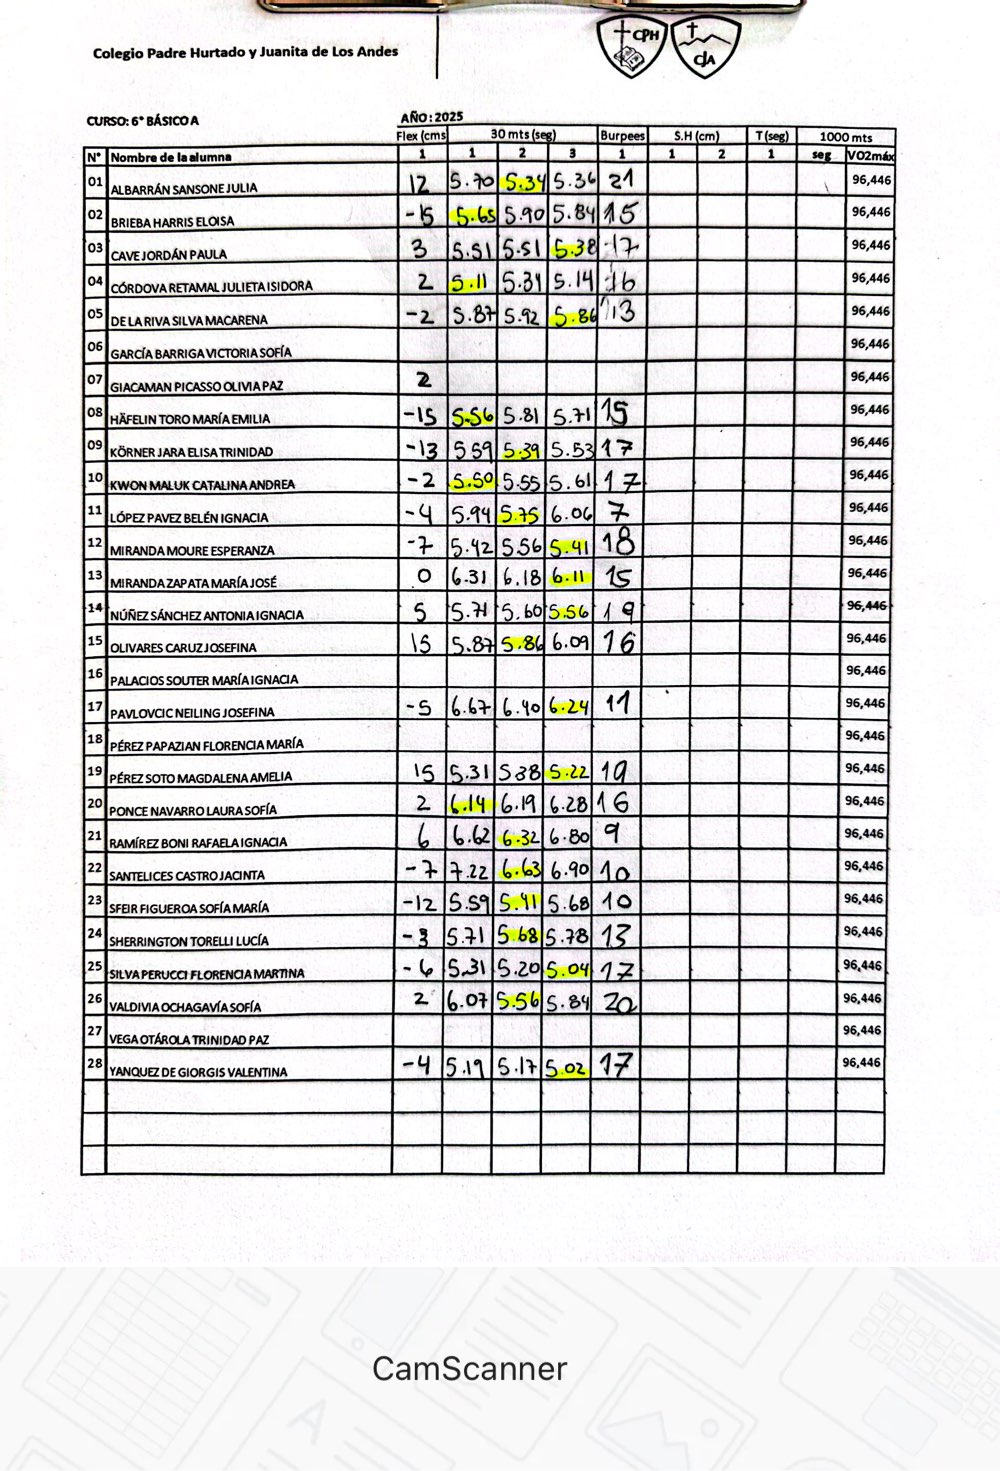 CPH
CJA
Colegio Padre Hurtado y Juanita de Los Andes
CURSO: 6° BÁSICO A AÑO: 2025
Flex (cms 30 mts (seg) Burpees S.H (cm) T (seg) 1000 mts
N° Nombre de la alumna 1 1 2 3 1 1 2 1 seg VO2máx
01 ALBARRÁN SANSONE JULIA 12 5.70 5.34 5.36 21 96,446
02 BRIEBA HARRIS ELOISA -15 5.65 5.90 5.84 15 96,446
03 CAVE JORDÁN PAULA 3 5.51 5.51 5.38 17 96,446
04 CÓRDOVA RETAMAL JULIETA ISIDORA 2 5.11 5.31 5.14 16 96,446
05 DE LA RIVA SILVA MACARENA -2 5.87 5.92 5.86 13 96,446
06 GARCÍA BARRIGA VICTORIA SOFÍA 96,446
07 GIACAMAN PICASSO OLIVIA PAZ 2 96,446
08 HÄFELIN TORO MARÍA EMILIA -15 5.56 5.81 5.71 15 96,446
09 KÖRNER JARA ELISA TRINIDAD -13 5.59 5.39 5.53 17 96,446
10 KWON MALUK CATALINA ANDREA -2 5.50 5.55 5.61 17 96,446
11 LÓPEZ PAVEZ BELÉN IGNACIA -4 5.94 5.75 6.06 7 96,446
12 MIRANDA MOURE ESPERANZA -7 5.42 5.56 5.41 18 96,446
13 MIRANDA ZAPATA MARÍA JOSÉ 0 6.31 6.18 6.11 15 96,446
14 NÚÑEZ SÁNCHEZ ANTONIA IGNACIA 5 5.71 5.60 5.56 19 96,446
15 OLIVARES CARUZ JOSEFINA 15 5.87 5.86 6.09 16 96,446
16 PALACIOS SOUTER MARÍA IGNACIA 96,446
17 PAVLOVCIC NEILING JOSEFINA -5 6.67 6.40 6.24 11 96,446
18 PÉREZ PAPAZIAN FLORENCIA MARÍA 96,446
19 PÉREZ SOTO MAGDALENA AMELIA 15 5.31 5.38 5.22 19 96,446
20 PONCE NAVARRO LAURA SOFÍA 2 6.14 6.19 6.28 16 96,446
21 RAMÍREZ BONI RAFAELA IGNACIA 6 6.62 6.32 6.80 9 96,446
22 SANTELICES CASTRO JACINTA -7 7.22 6.63 6.90 10 96,446
23 SFEIR FIGUEROA SOFÍA MARÍA -12 5.59 5.41 5.68 10 96,446
24 SHERRINGTON TORELLI LUCÍA -3 5.71 5.68 5.78 13 96,446
25 SILVA PERUCCI FLORENCIA MARTINA -6 5.31 5.20 5.04 17 96,446
26 VALDIVIA OCHAGAVÍA SOFÍA 2 6.07 5.56 5.84 20 96,446
27 VEGA OTÁROLA TRINIDAD PAZ 96,446
28 YANQUEZ DE GIORGIS VALENTINA -4 5.19 5.17 5.02 17 96,446
CamScanner